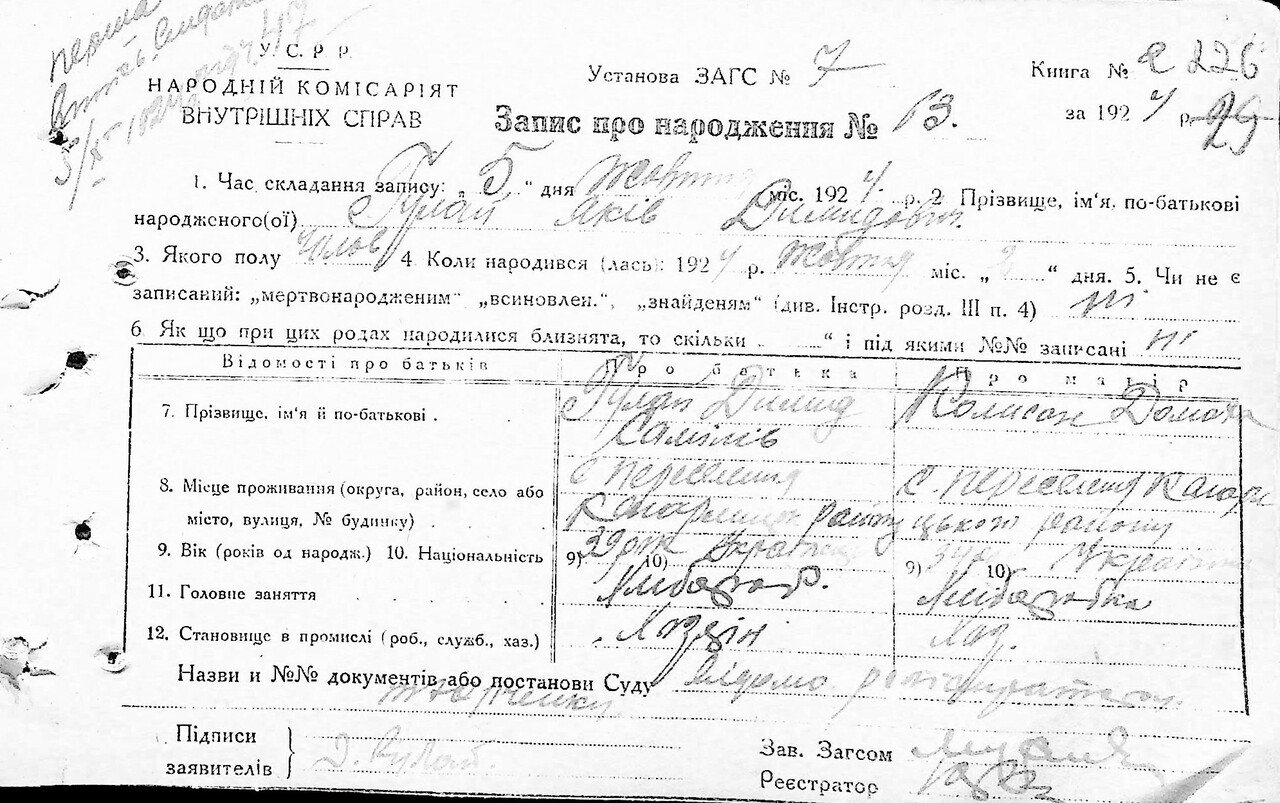 перша
У. С. Р Р.
Установа ЗАГС № 7
Книга № 226
НАРОДНІЙ КОМІСАРІЯТ
ВНУТРІШНІХ СПРАВ
Запис про народження № 13.
за 1924 р. 29
1. Час складання запису: „ 5 " дня жовтня міс. 1924 р. 2 Прізвище, ім'я, по-батькові
народженого(ої) Гулай Яків Димидович.
3. Якого полу чолов 4. Коли народився (лась): 1924 р. жовтня міс. „ 2 " дня. 5. Чи не є
записаний: „мертвонародженим" „всиновлен.", „знайденям" (див. Інстр. розд. III п. 4) ні
6. Як що при цих родах народилися близнята, то скільки . " і під якими №№ записані ні
Відомості про батьків Про батька Про матір
7. Прізвище, ім'я й по-батькові . Гулай Димид
8. Місце проживання (округа, район, село або с Переселення с. Переселення
місто, вулиця, № будинку) . району
9. Вік (років од народж.) 10. Національність 9) 39 рок 10) Украинец 9) 34 р 10) Украинка
11. Головне заняття Хлібороб. Хліборобка
12. Становище в промислі (роб., служб., хаз.) Хазяін Хаз.
Назви и №№ документів або постанови Суду Відомо
Підписи
заявителів Д. Гулай.
Зав. Загсом
Реєстратор